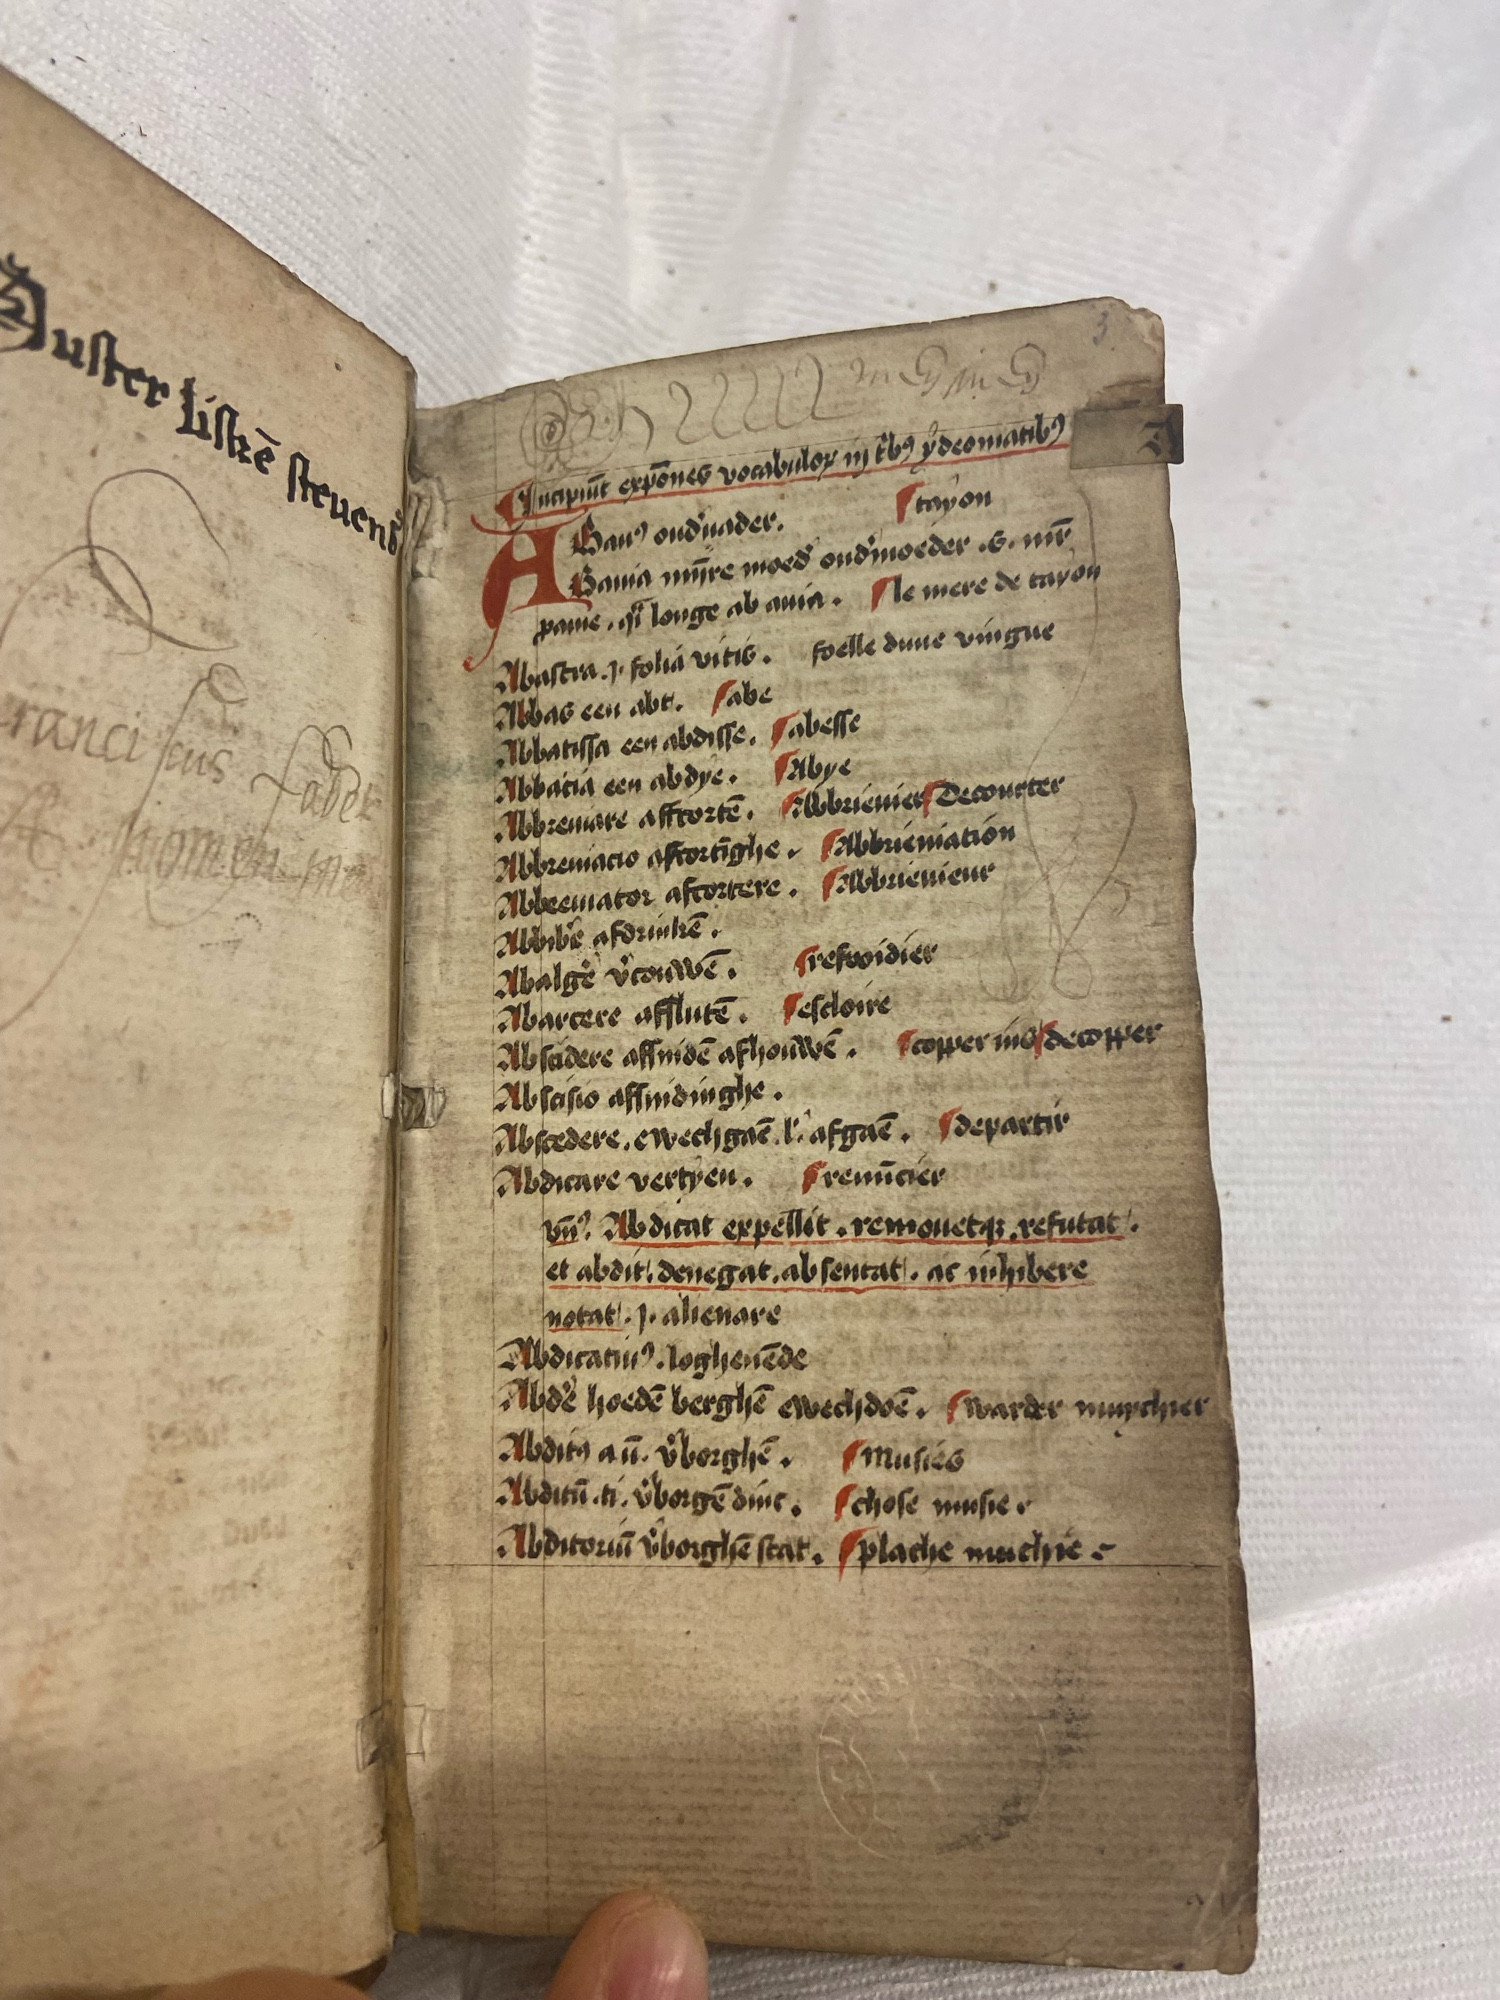 Suster liskē steuens
franciscus faber
3
A
Incipiūt expōnes vocabuloꝝ iij tᷣbꝰ ydeomatibꝰ
Abauꝰ oud'uader. tayon
Abauia mīre moed' oud'moeder .G. mr̄
pauie. qͣi longe ab auia. le mere de tayon
Abastra .j. folia vitis. foelle dune vingne
Abbas een abt. abe
Abbatissa een abdisse. abesse
Abbatia een abdye. Abye
Abbreuiare affcortē. Abbrieuier decourter
Abbreuiacio afcortīghe. Abbrieuiation
Abbreuiator afcortere. Abbrieuieur
Abbib'e afdrinkē.
Abalg'e v'couwē. refroidier
Abarcere affslutē. escloire
Abscidere affnidē afhouwē. copper ius decopper
Abscisio affnidinghe.
Abscedere. ewechgaē .l'. afgaē. departir
Abdicare vertyen. renūcier
vn̄. Abdicat expellit. remouetqꝫ. refutat.
et abdit. denegat. absentat. ac inhibere
notat. .j. alienare
Abdicatiuꝰ. loghenēde
Abd'e hoedē berghē ewechdoē. warder muychier
Abditꝰ a ū. v'borghē. Musies
Abditū .ti. v'borgē dinc. chose musie.
Abditoriū v'borghē stat. plache muchie